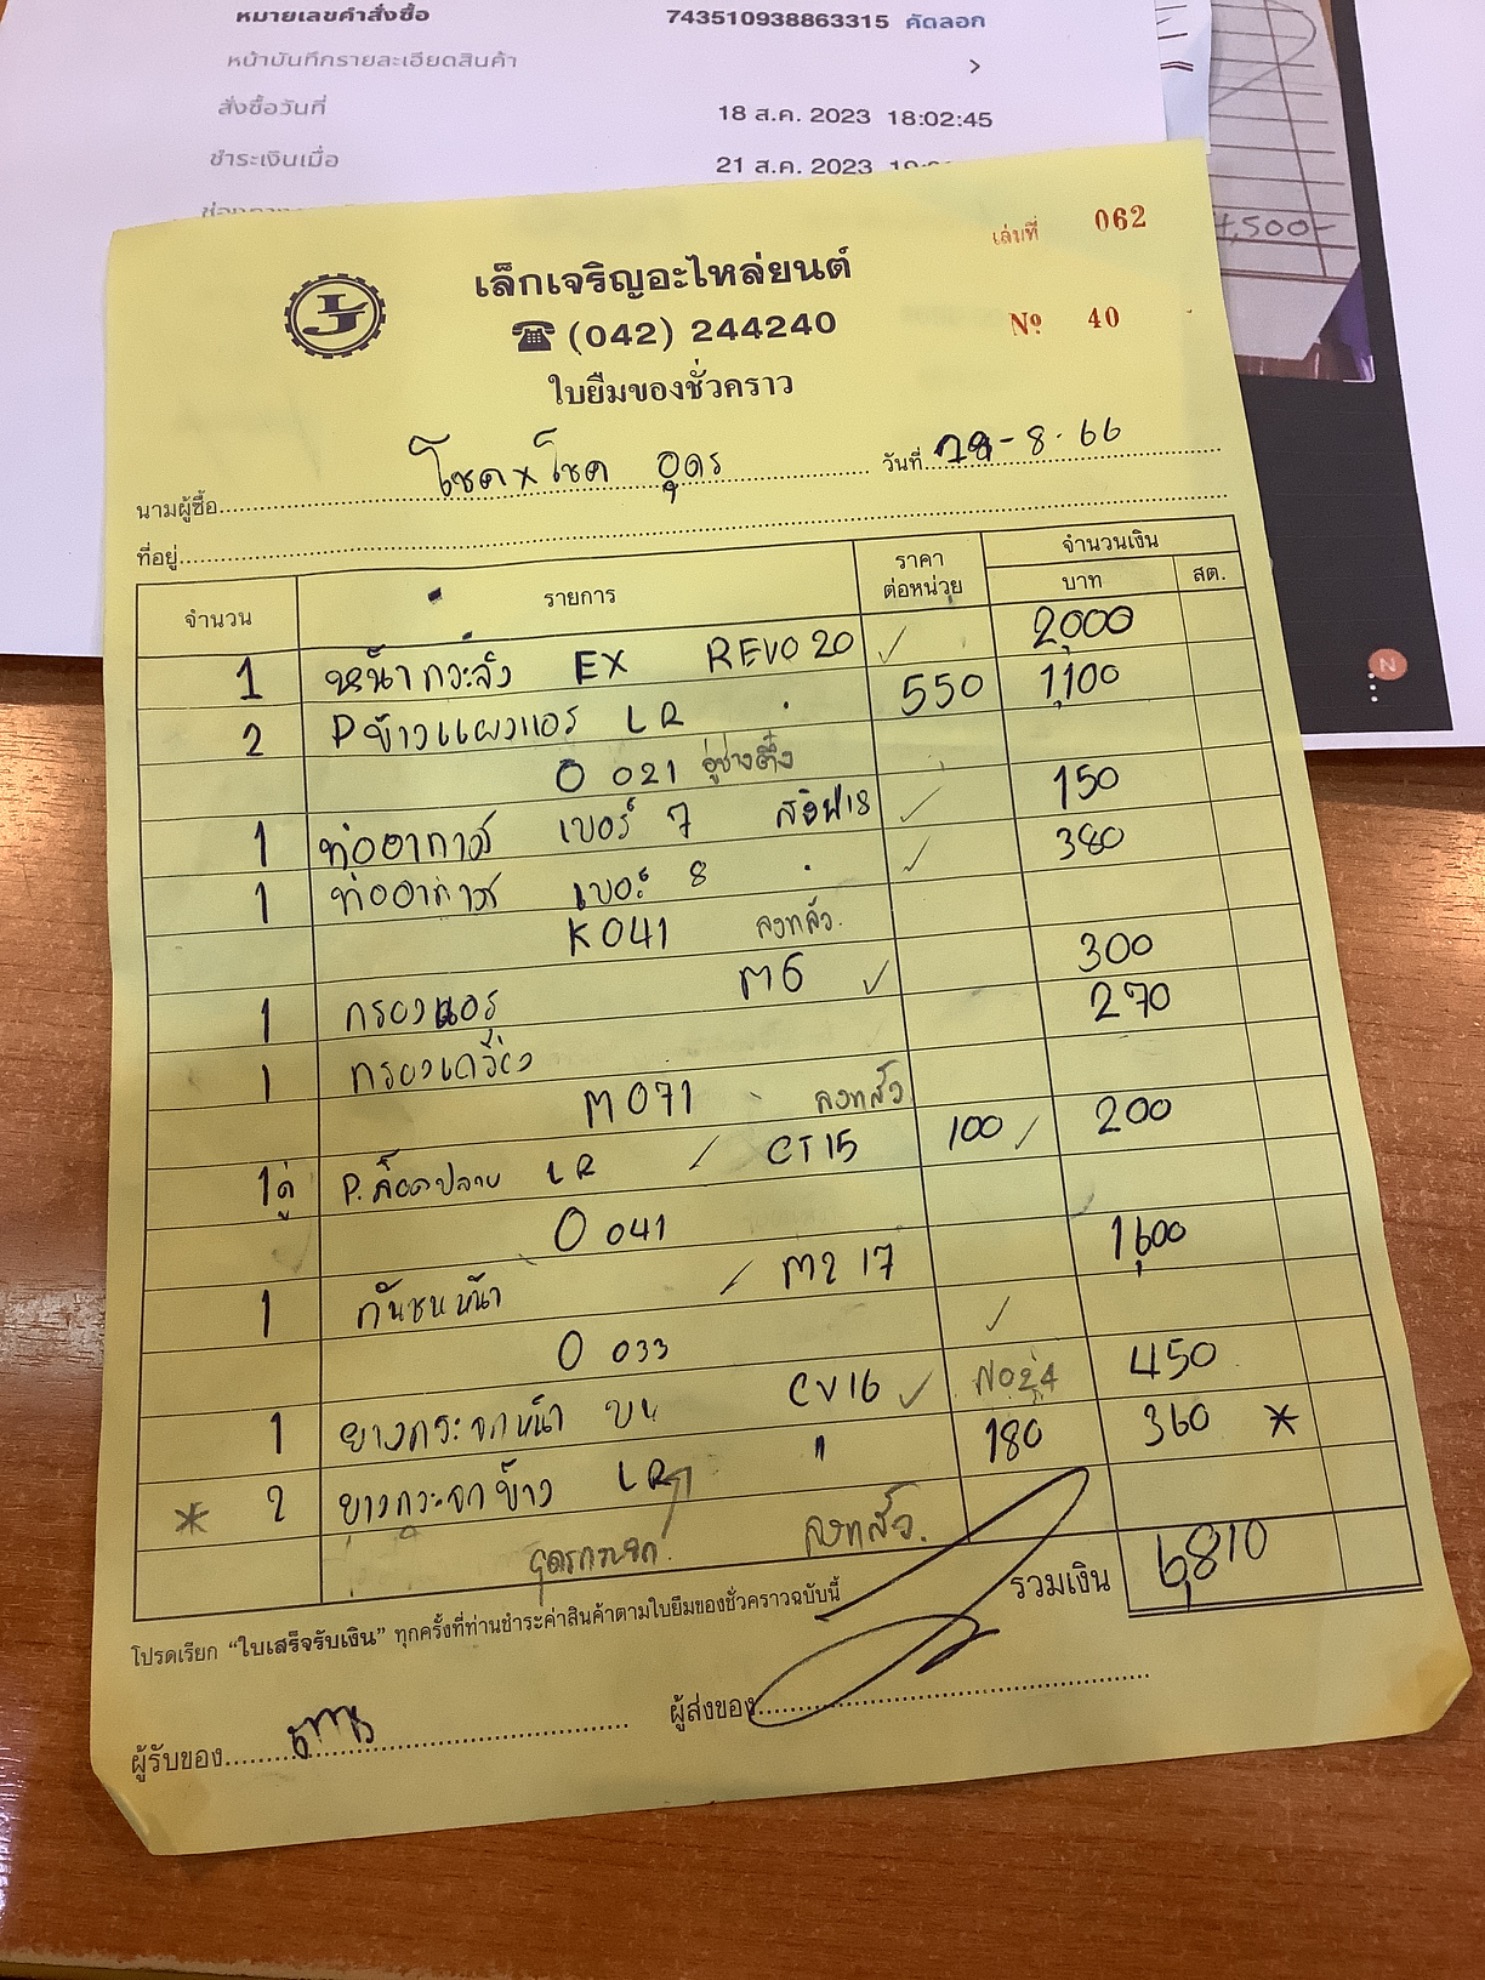 หมายเลขคำสั่งซื้อ 743510938863315 คัดลอก
หน้าบันทึกรายละเอียดสินค้า >
สั่งซื้อวันที่ 18 ส.ค. 2023 18:02:45
ชำระเงินเมื่อ 21 ส.ค. 2023
4,500-
เล่มที่ 062
เล็กเจริญอะไหล่ยนต์
(042) 244240
Nº 40
ใบยืมของชั่วคราว
นามผู้ซื้อ โชค x โชค อุดร วันที่ -8.66
ที่อยู่
จำนวน รายการ ราคาต่อหน่วย จำนวนเงิน
บาท สต.
1 หน้ากระจัง EX REVO 20 ✓ 2,000
2 Pข้างแผงแอร์ LR . 550 1,100
O 021 อู่ช่างตึ๋ง
1 ท่ออากาศ เบอร์ 7 ✓ 150
1 ท่ออากาศ เบอร์ 8 . ✓ 380
K041 ลงแล้ว.
1 กรองแอร์ M6 ✓ 300
1 กรองเครื่อง 270
M071 ลงแล้ว
1คู่ P.ล็อคปลาย LR ✓ CT15 100 ✓ 200
O 041
1 กันชนหน้า ✓ M2 17 1,600
O 033 ✓
1 ยางกระจกหน้า บน CV16 ✓ N024 450
* 2 ยางกระจกข้าง LR " 180 360 *
ลงแล้ว.
รวมเงิน 6,810
โปรดเรียก “ใบเสร็จรับเงิน” ทุกครั้งที่ท่านชำระค่าสินค้าตามใบยืมของชั่วคราวฉบับนี้
ผู้รับของ ผู้ส่งของ